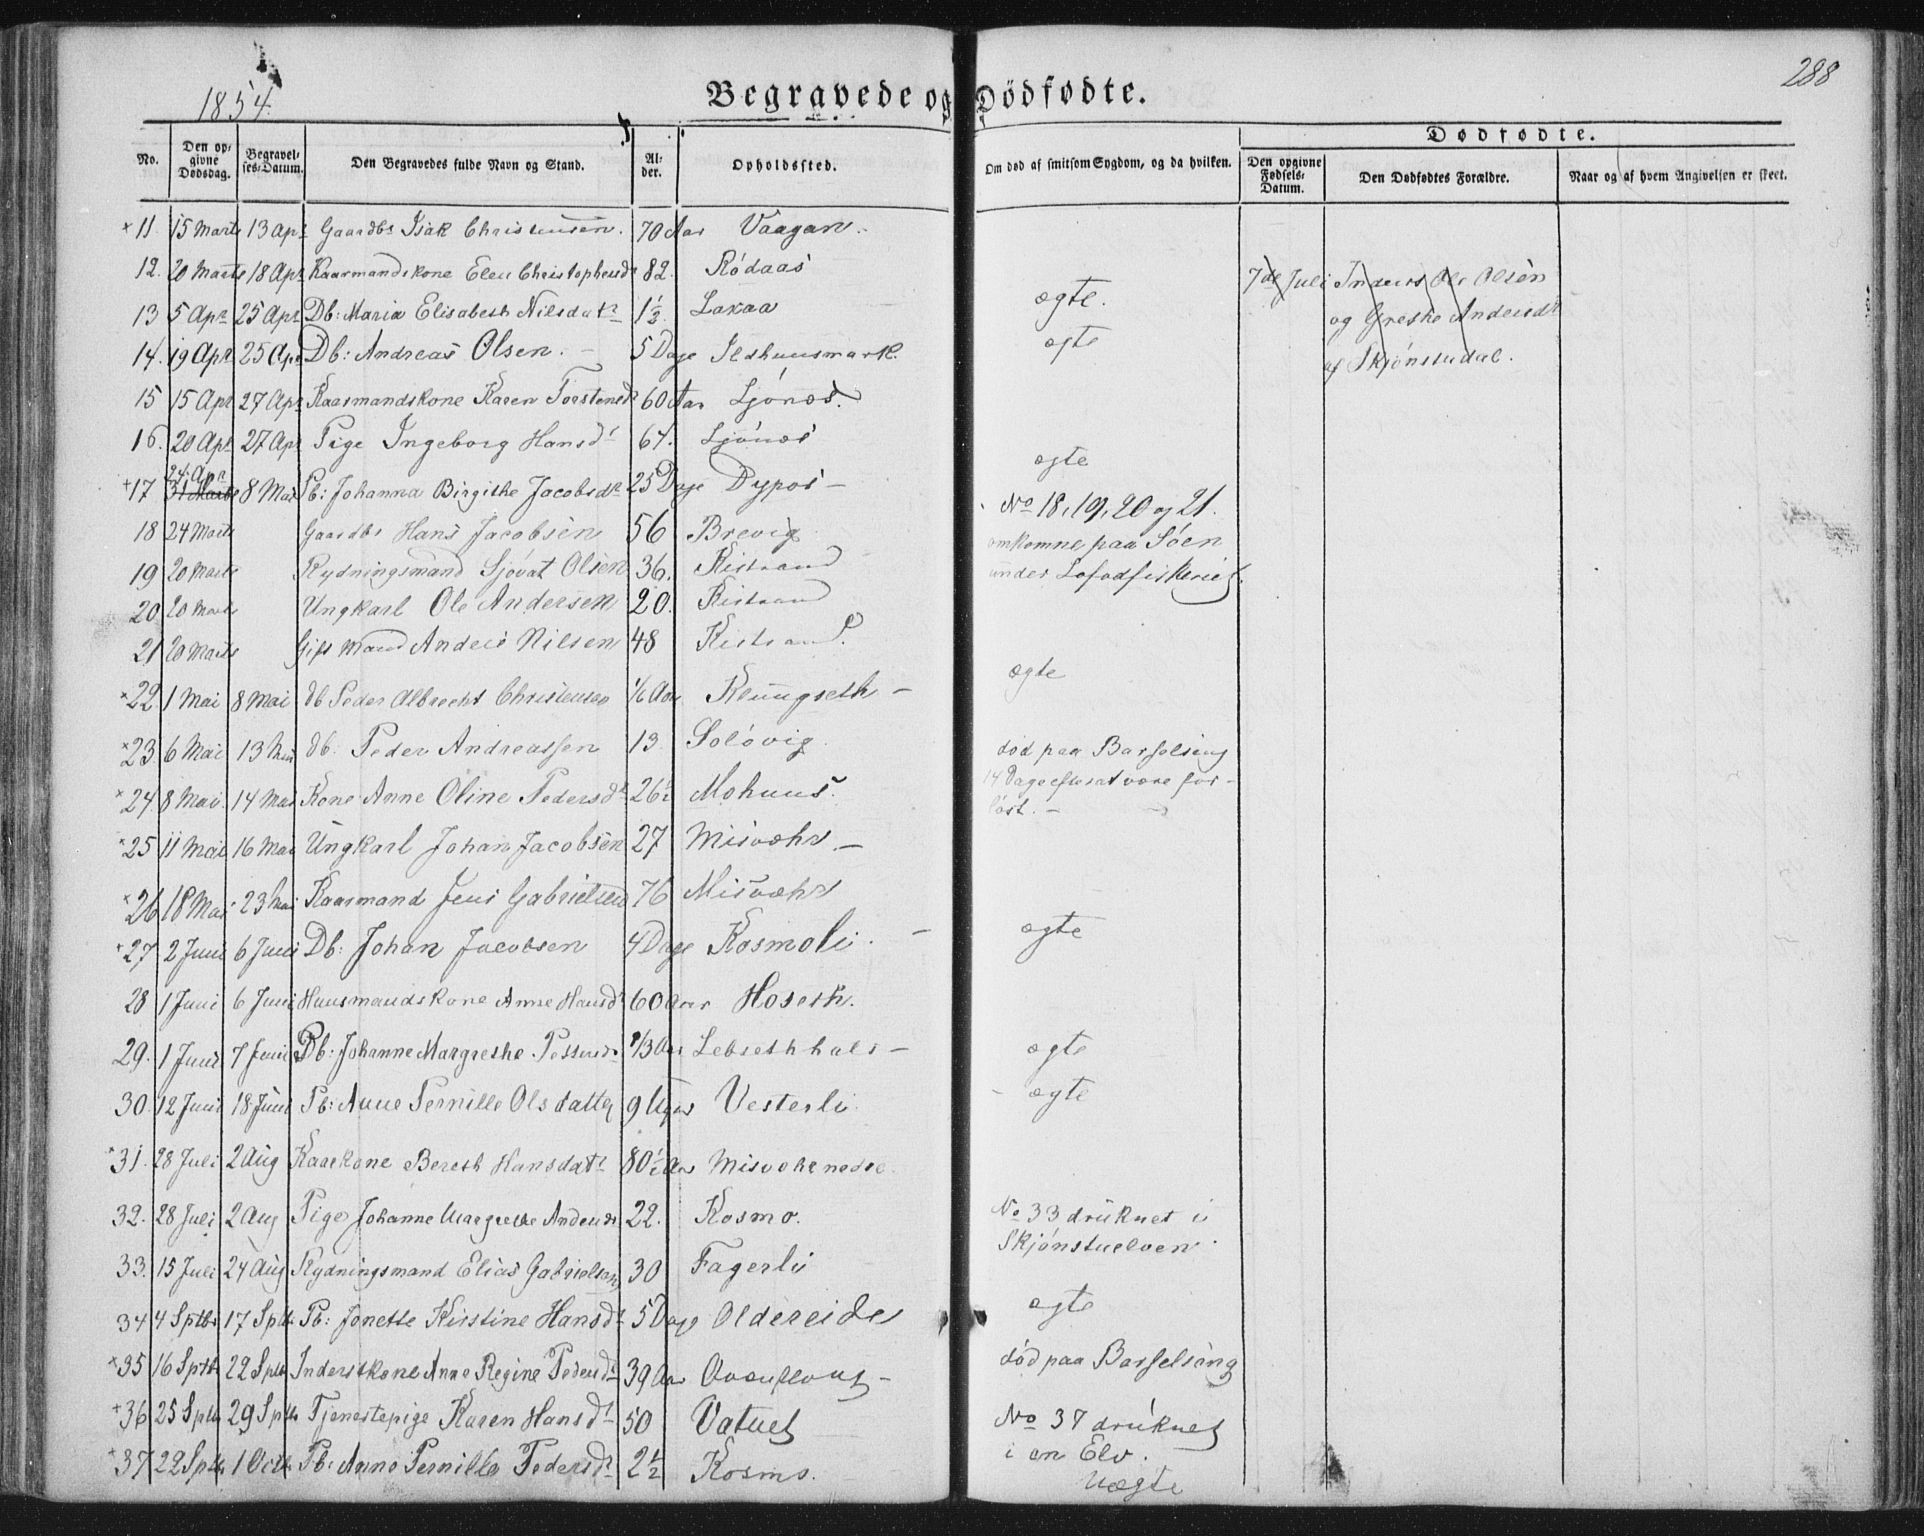 288
1854.
Begravede og Dødfødte.
Dødfødte.
No. Den opgivne Dødsdag. Begravelses-Datum. Den Begravedes fulde Navn og Stand. Alder. Opholdssted. Om død af smitsom Sygdom, og da hvilken. Den opgivne Fødsels-Datum. Den Dødfødtes Forældre. Naar og af hvem Angivelsen er skeet.
11. 15 Marts 13 Apr Gaardbr Isak Christensen. 70 Aar Vaagan.
12. 20 Marts 18 Apr Kaarmandskone Elen Christophersdr 82. Rödaas
7de Juli Inderst Ole Olsen
13 5 Apr 25 Apr Db: Maria Elisabeth Nilsdatr 1½ Laxaa ægte.
og Grethe Andersdr
14. 19 Apr 25 Apr Db: Andreas Olsen. 5 Dage Ildhuusmark. egte
af Skjönstudal.
15 15 Apr 27 Apr Kaarmandskone Karen Torstensdr 60 Aar Ljönes.
16. 20 Apr 27 Apr Pige Ingeborg Hansdr 67. Ljönes
+17 24 Apr 31 Marts 8 Mai Pb: Johanna Birgithe Jacobsdr 25 Dage Dypos - egte
18 24 Marts Gaardbr Hans Jacobsen 56 Brevig No 18, 19, 20 og 21.
19 20 Marts Rydningsmand Sjövat Olsen 36. Kistrand omkomne paa Söen
20 20 Marts Ungkarl Ole Andersen 20. Kistrand under Lofodfiskeriet.
21 20 Marts Gift Mand Anders Nilsen 48 Kistrand.
22 1 Mai 8 Mai db Peder Albrecht Christensen 1/6 Aar Klungseth - ægte
23 6 Mai 13 Mai db. Peder Andreassen 13 Solövig
24. 8 Mai 14 Mai Kone Anne Oline Pedersdr 26½ Mohuus. död paa Barselseng
14 Dage efter at være for-
löst. -
25 11 Mai 16 Mai Ungkarl Johan Jacobsen 27 Misvæhr -
26 18 Mai 23 Mai Kaarmand Jens Gabrielsen 76 Misvæhr
27 2 Juni 6 Juni Db: Johan Jacobsen 4 Dage Kosmoli. - egte
28 1 Juni 6 Juni Huusmandskone Anne Hansdr 60 Aar Hoseth.
29. 1 Juni 7 Juni Pb: Johanne Margrethe 1/3 Aar - egte
30. 12 Juni 18 Juni Pb: Anne Pernille Olsdatter 9 Uger Vesterli - ægte
31. 28 Juli 2 Aug Kaarkone Bereth Hansdatr 80½ Aar Misvæhrnedre
32. 28 Juli 2 Aug Pige Johanne Margrethe Andersdr 22. Kosmo.
33. 15 Juli 24 Aug Rydningsmand Elias Gabrielsen 30 Fagerli No 33 druknet i
Skjönstuelven
34 4 Sptbr 17 Sptbr Pb: Jonette Kirstine Hansdr 5 Dage Oldereide egte
35 16 Sptbr 22 Sptbr Inderstkone Anne Regine Pedersdr 39 Aar död paa Barselseng
+36 25 Sptbr 29 Sptbr Tjenestepige Karen Hansdr 50 Vatnet
37 22 Sptbr 1 Octbr Pb: Anne Pernille Pedersdr 2½ Kosmo. No 37 druknet
i en Elv.
Uægte